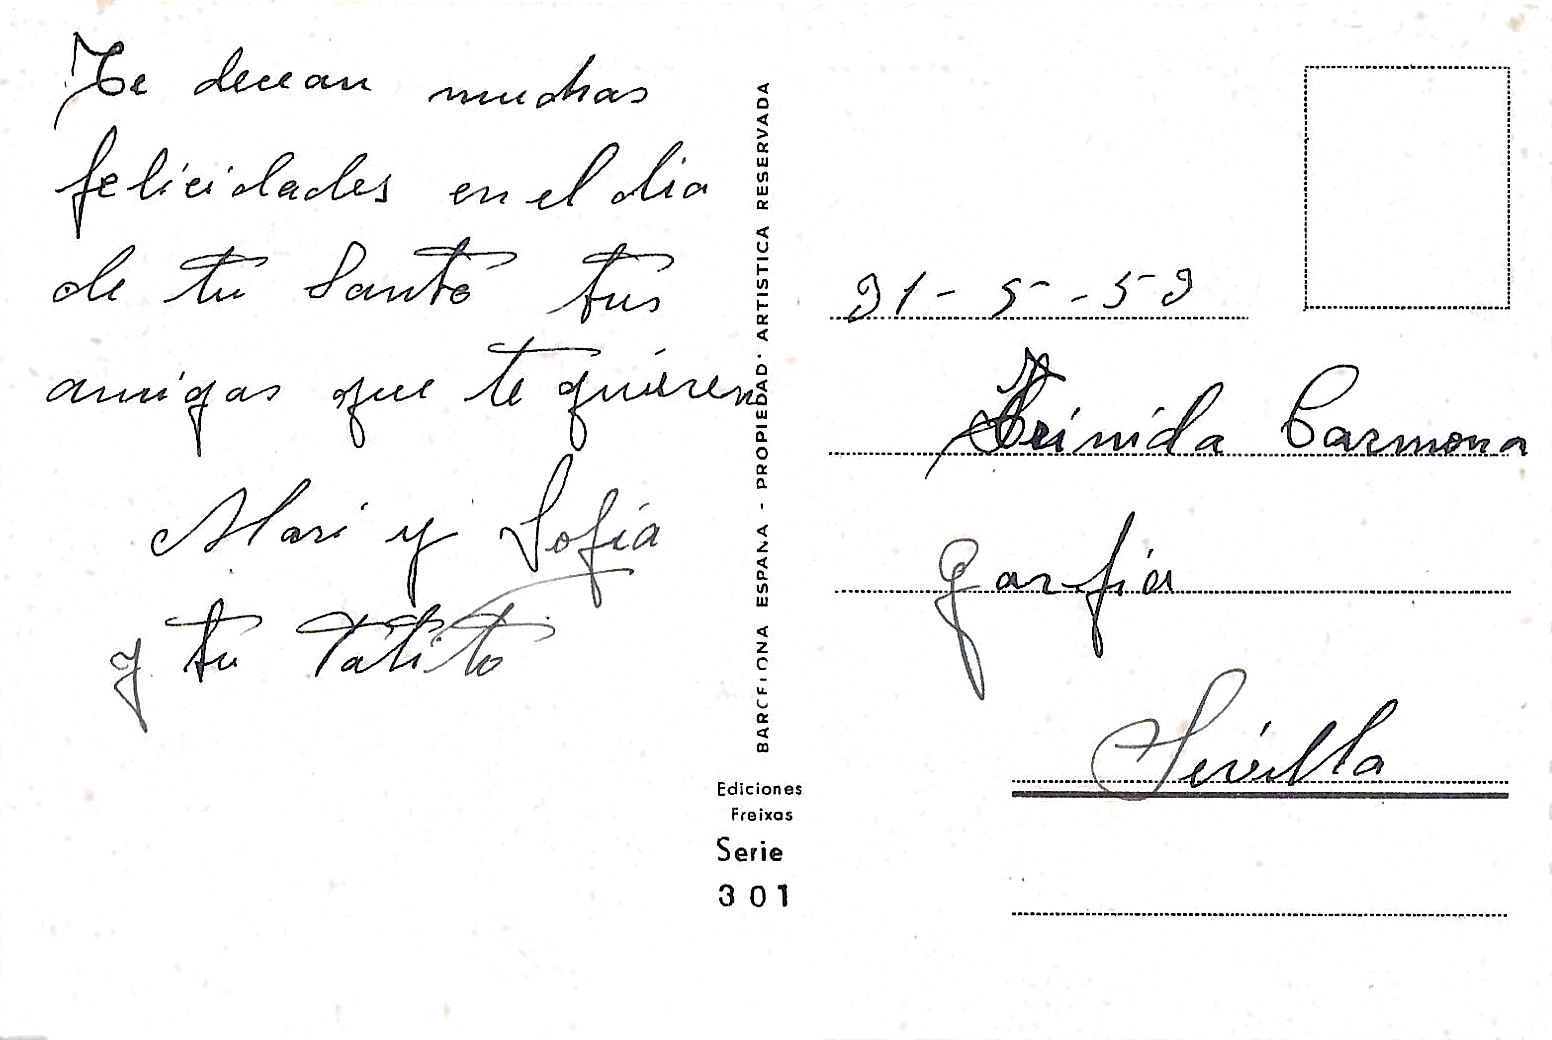 Te decean muchas
felicidades en el dia
de tu Santo tus
amigas que te quieren
Mari y Sofia
y tu Tatito
BARCELONA ESPAÑA - PROPIEDAD ARTISTICA RESERVADA
Ediciones
Freixas
Serie
301
31 - 5 - 59
Trinida Carmona
Garfia
Sevilla